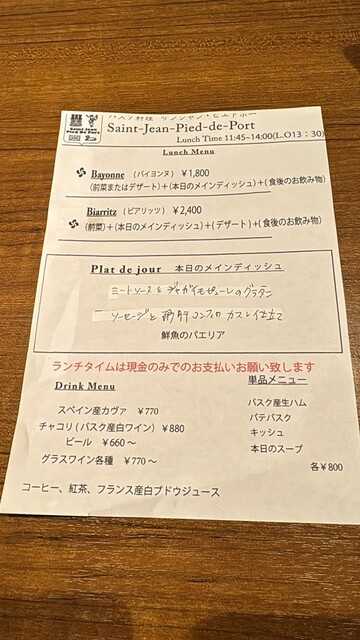 バスク料理 サンジャン・ピエドポー
Saint Jean
Pied de Port
Saint-Jean-Pied-de-Port
Lunch Time 11:45~14:00(L.O13:30)
Lunch Menu
Bayonne (バイヨンヌ) ¥1,800
(前菜またはデザート)+(本日のメインディッシュ)+(食後のお飲み物)
Biarritz (ビアリッツ) ¥2,400
(前菜)+(本日のメインディッシュ)+(デザート)+(食後のお飲み物)
Plat de jour 本日のメインディッシュ
ミートソースとジャガイモピューレのグラタン
ソーセージと コンフィの カスレ仕立て
鮮魚のパエリア
ランチタイムは現金のみでのお支払いお願い致します
Drink Menu
スペイン産カヴァ ¥770
チャコリ(バスク産白ワイン) ¥880
ビール ¥660〜
グラスワイン各種 ¥770〜
単品メニュー
バスク産生ハム
パテバスク
キッシュ
本日のスープ
各¥800
コーヒー、紅茶、フランス産白ブドウジュース